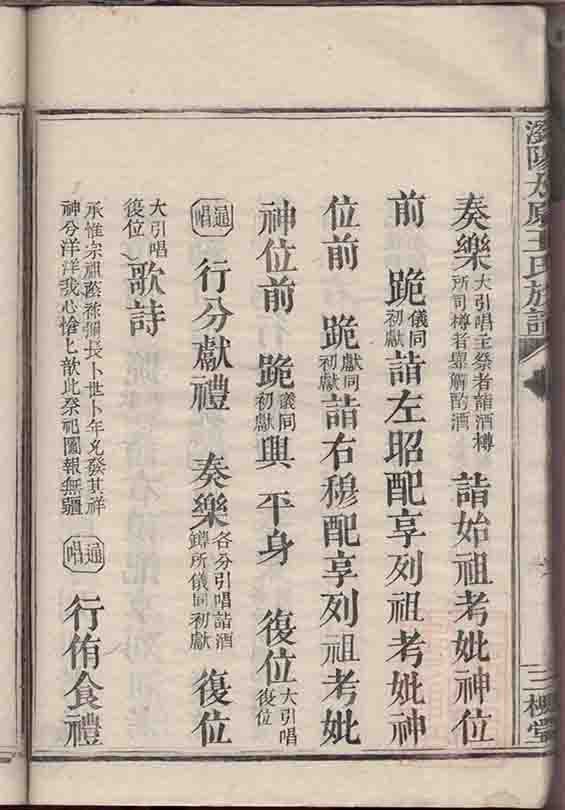 瀏陽太原王氏族譜 三槐堂
奏樂 大引唱主祭者詣酒樽所司樽者酌酒 詣始祖考妣神位
前 跪 儀同初獻 詣左昭配享列祖考妣神
位前 跪 獻同初獻 詣右穆配享列祖考妣
神位前 跪 儀同初獻 興 平身 復位 大引唱復位
通唱 行分獻禮 奏樂 各分引唱詣酒罇所儀同初獻 復位
大引唱復位 歌詩
承惟宗祺蔭彌長卜世卜年允發其祥神兮洋洋我心愴匕歆此祭祀圖報無疆 通唱 行侑食禮